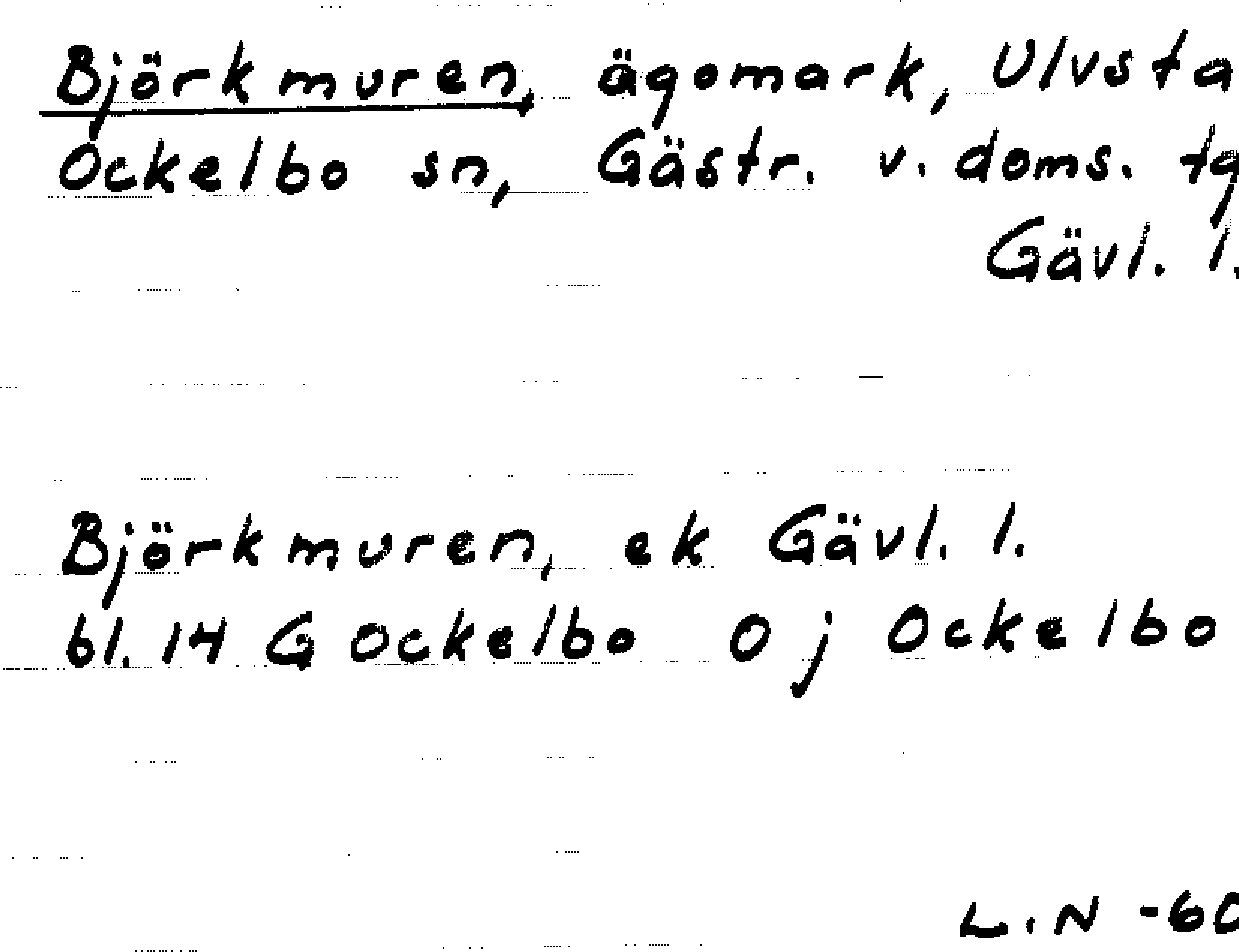 Björkmuren, ägomark, Ulvsta
Ockelbo sn, Gästr. v. doms. tg
Gävl. l.
Björkmuren, ek Gävl. l.
bl. 14 G Ockelbo O j Ockelbo
L.N -60